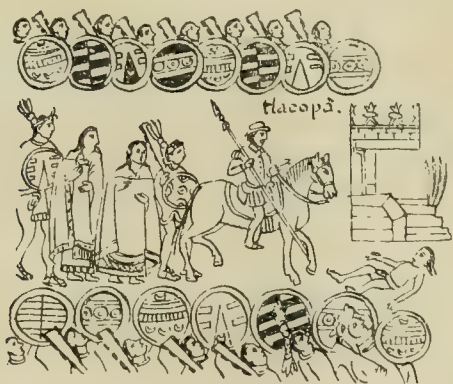 tlacopā.